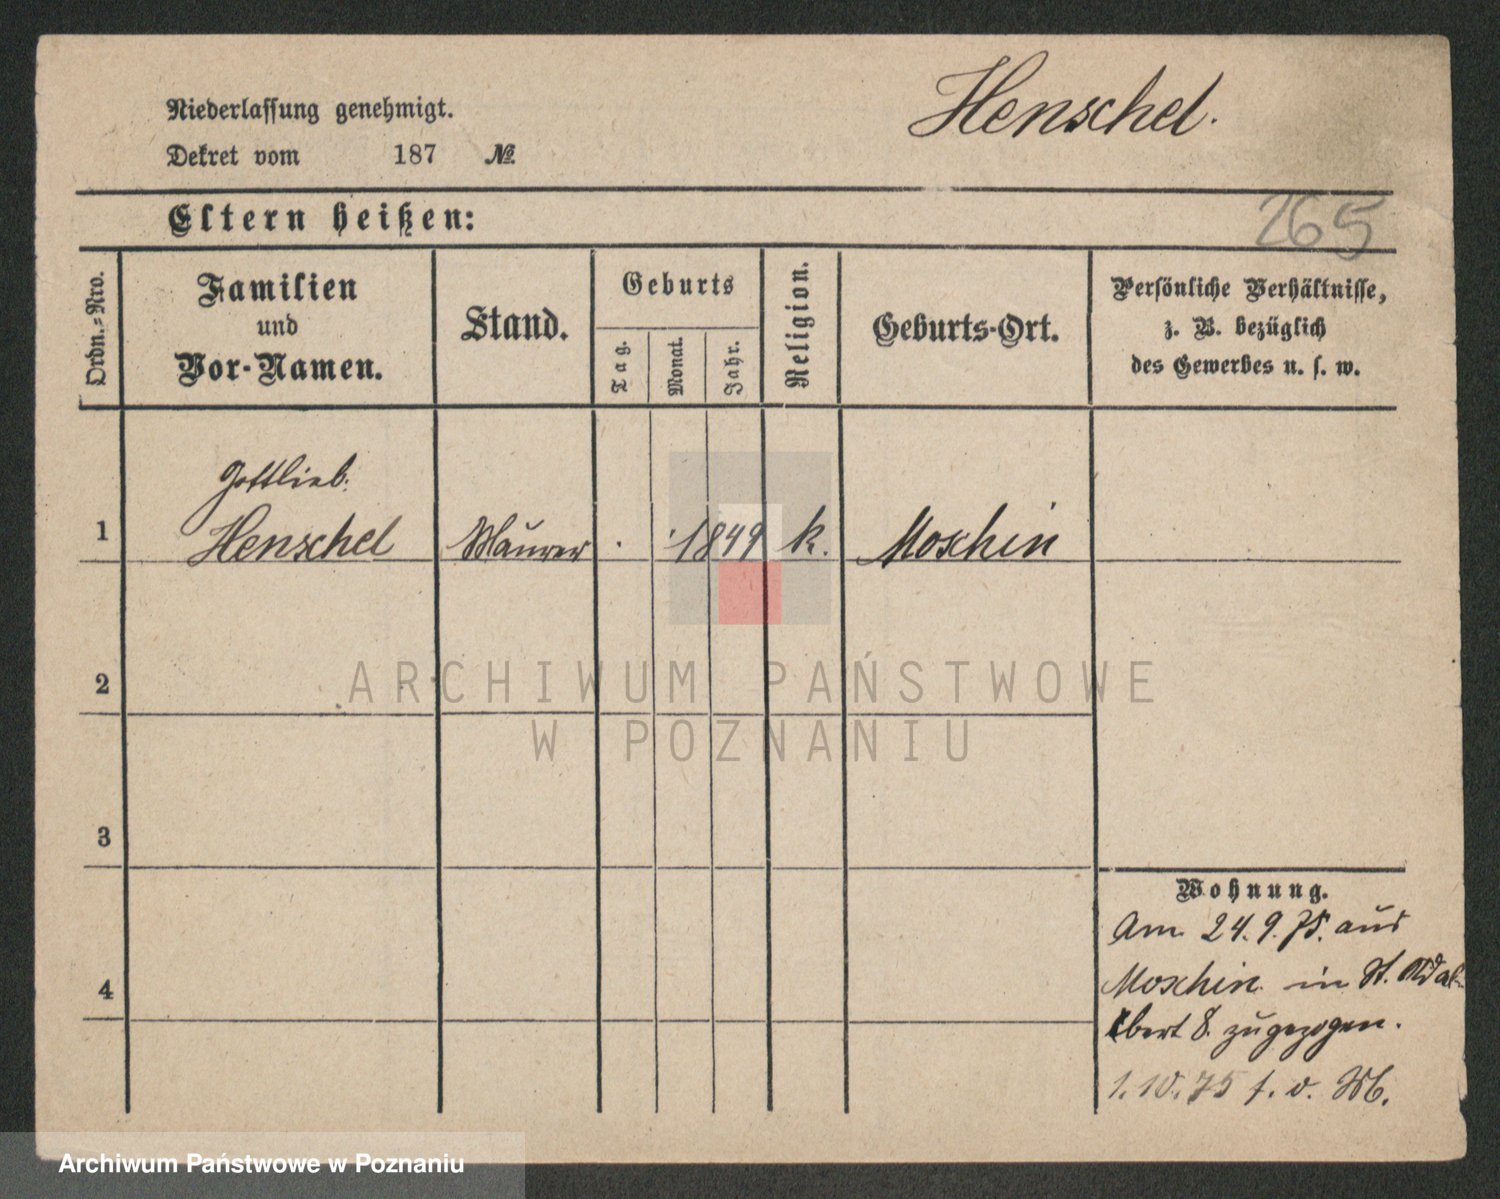 Henschel.
Niederlassung genehmigt.
Dekret vom 187 №
Eltern heißen:
265
Ordn.-Nro.
Familien
und
Vor-Namen.
Stand.
Geburts
Tag.
Monat.
Jahr.
Religion.
Geburts-Ort.
Persönliche Verhältnisse,
z. B. bezüglich
des Gewerbes u. s. w.
Gottlieb.
1 Henschel Maurer 1849 k. Moschin
2
ARCHIWUM PAŃSTWOWE
W POZNANIU
3
Wohnung.
Am 24. 9. 75. aus
Moschin in St. Adal-
4
bert 8. zugezogen.
1. 10. 75 f. v.
Archiwum Państwowe w Poznaniu